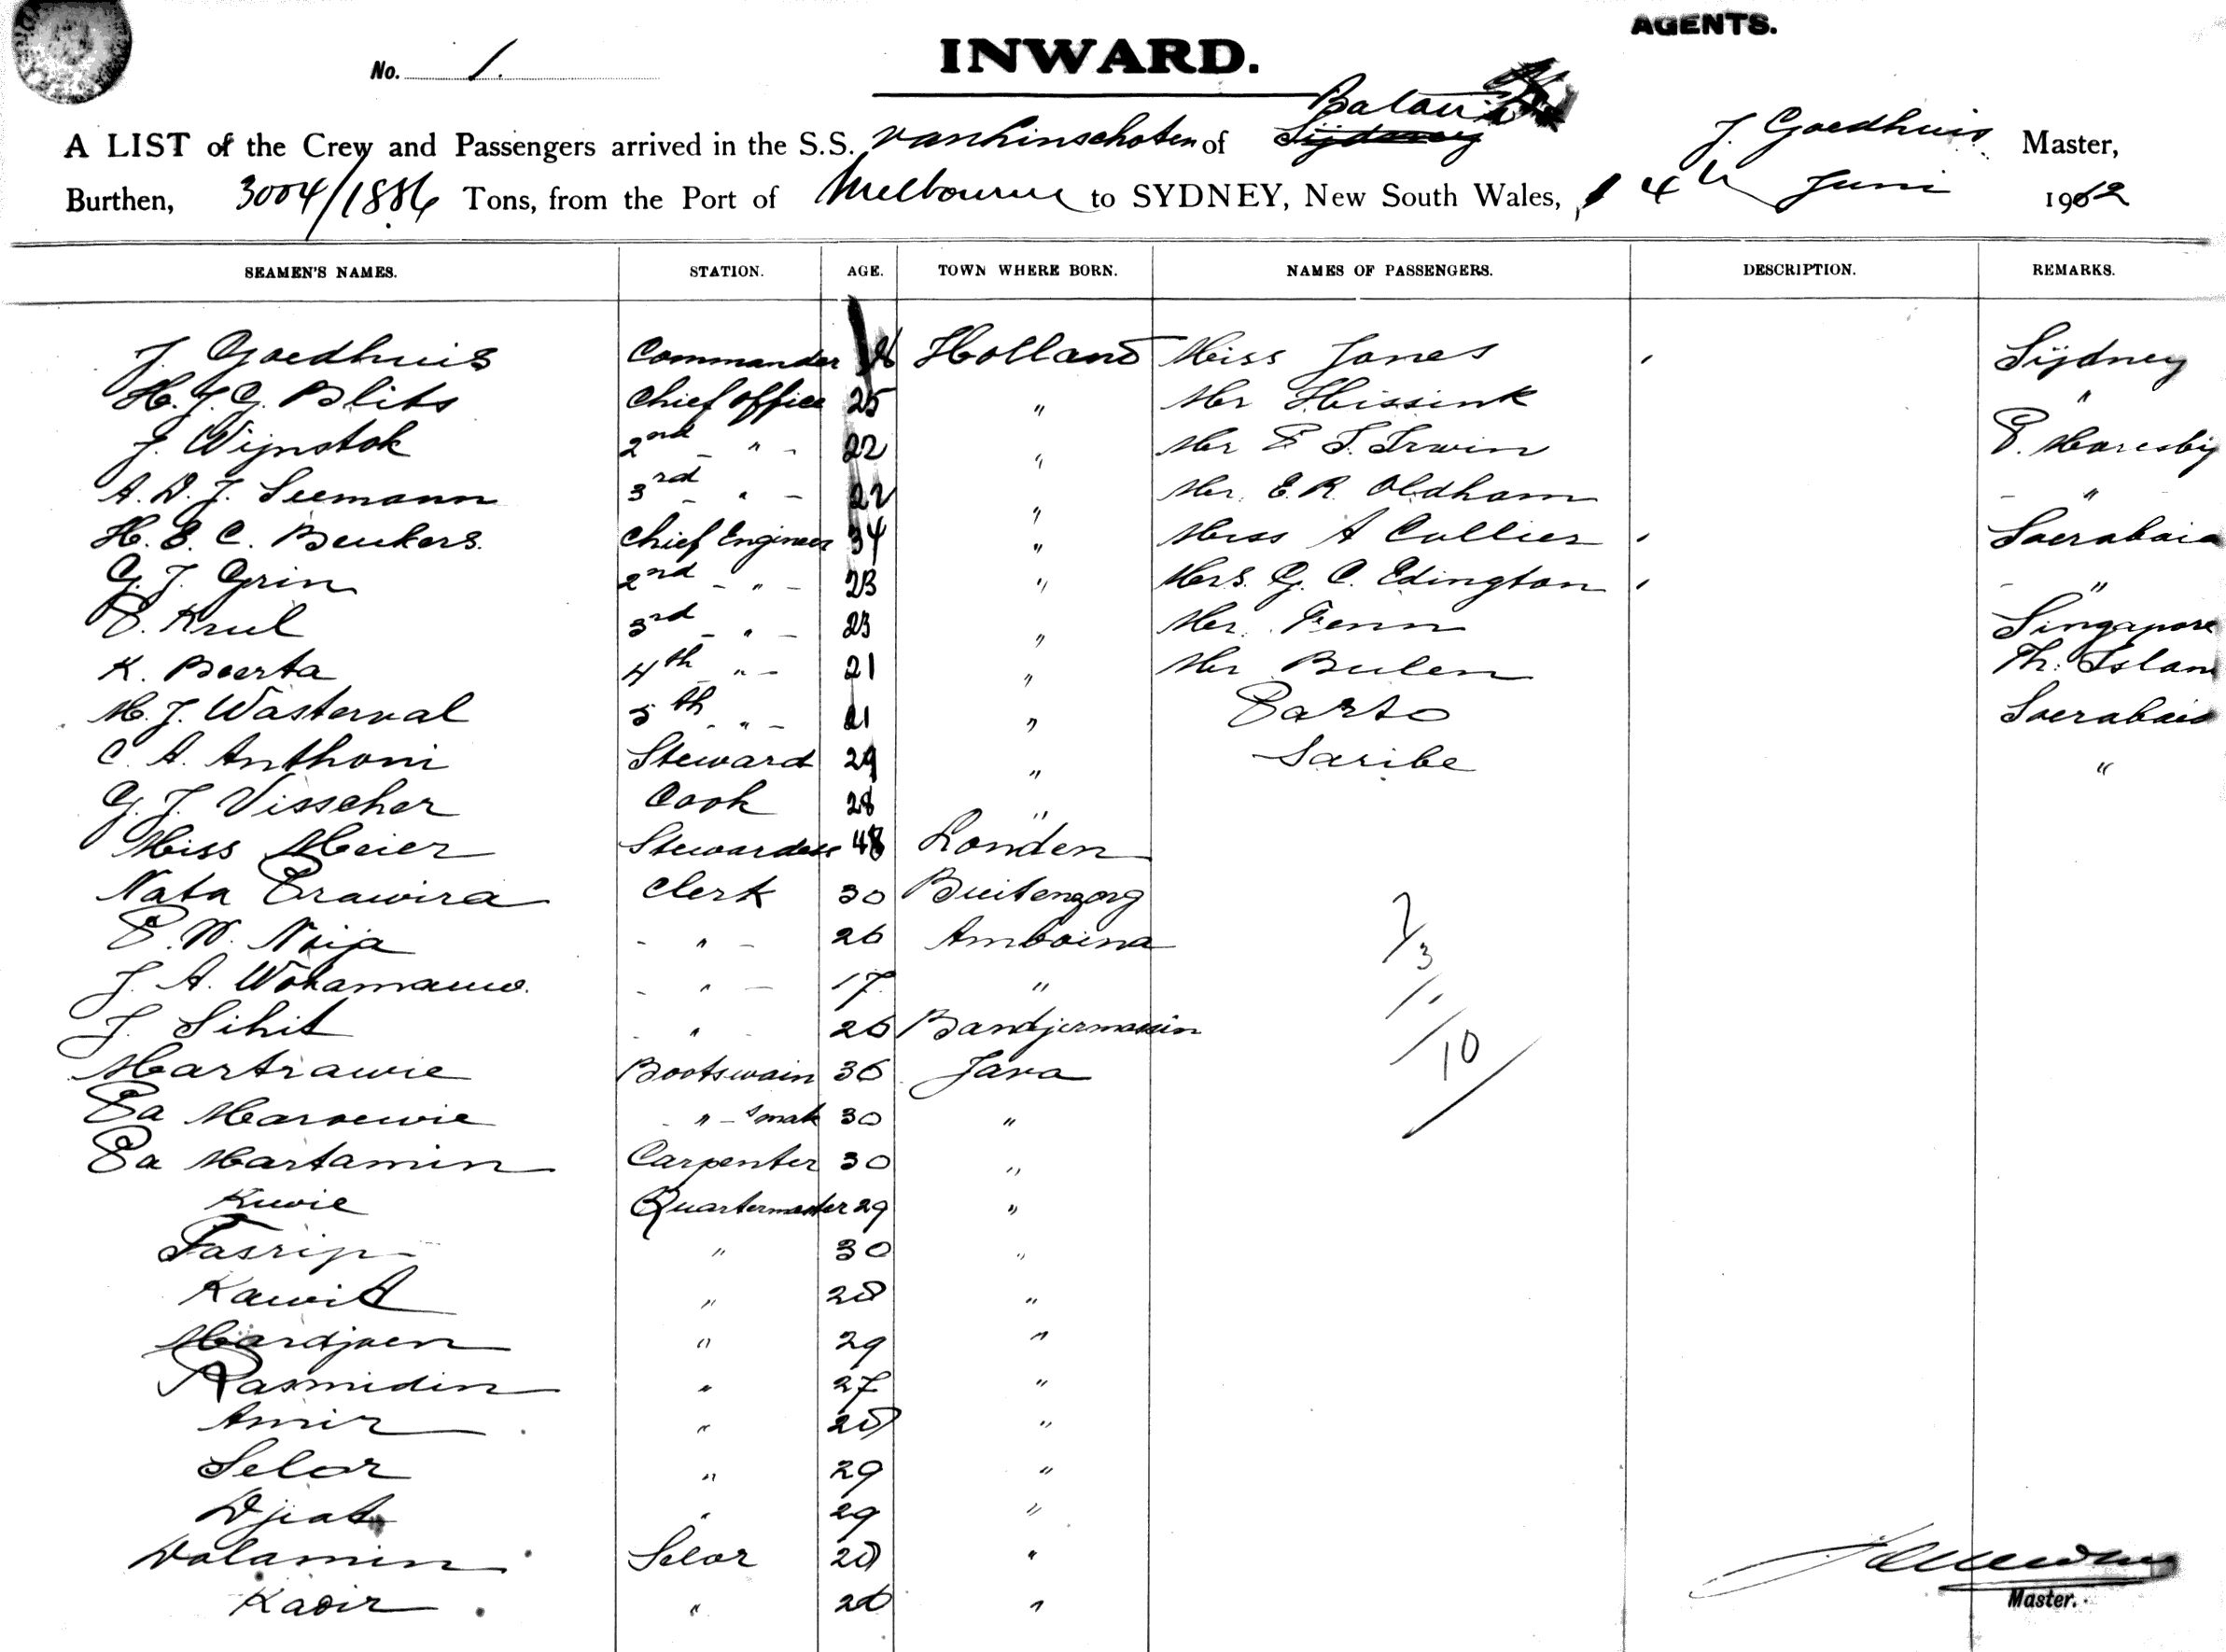 AGENTS.
No. 1.
INWARD.
Batavia
A LIST of the Crew and Passengers arrived in the S.S. van Linschoten of Sydney J. Goedhuis Master,
Burthen, 3004/1886 Tons, from the Port of Melbourne to SYDNEY, New South Wales, 4th Juni 1912
SEAMEN'S NAMES. STATION. AGE. TOWN WHERE BORN. NAMES OF PASSENGERS. DESCRIPTION. REMARKS.
J. Goedhuis Commander Holland Miss Jones Sijdney
H. J. G. Blits Chief Office 25 " Mr Hissink "
J. Wijnstok 2nd " 22 " Mr E T. Irwin P. Moresby
A. D. J. Seemann 3rd " 22 " Mr. E. R. Oldham "
H. E. C. Beukers. Chief Engineer 34 " Miss A Collier Soerabaia
G. J. Grin 2nd " 23 " Mrs. G. C. Edington "
P. Krul 3rd " 23 " Mr. Fenn Singapore
K. Boerta 4th " 21 " Mr Bulen Th. Islan
M. J. Wasterval 5th " 21 " Parto Soerabaia
C. A. Anthoni Steward 29 " Saribe "
G. J. Visscher Cook 28 "
Miss Meier Stewardess 48 Londen
Nata Prawira Clerk 30 Buitenzorg
P. W. Noija " 26 Amboina
J. A. " 17 "
J. Sihit " 26 Bandjermassin
Martrawie Bootswain 36 Java
Pa Maroewie " smate 30 "
Pa Martamin Carpenter 30 "
Kuwie Quartermaster 29 "
Tasrip " 30 "
Kawit " 28 "
Mardjoen " 29 "
Rasmidin " 27 "
Amir " 28 "
Selar " 29 "
Djiat " 29 "
Dalamin Selor 28 "
Kasir " 26 "
7/3
11/10
Master.